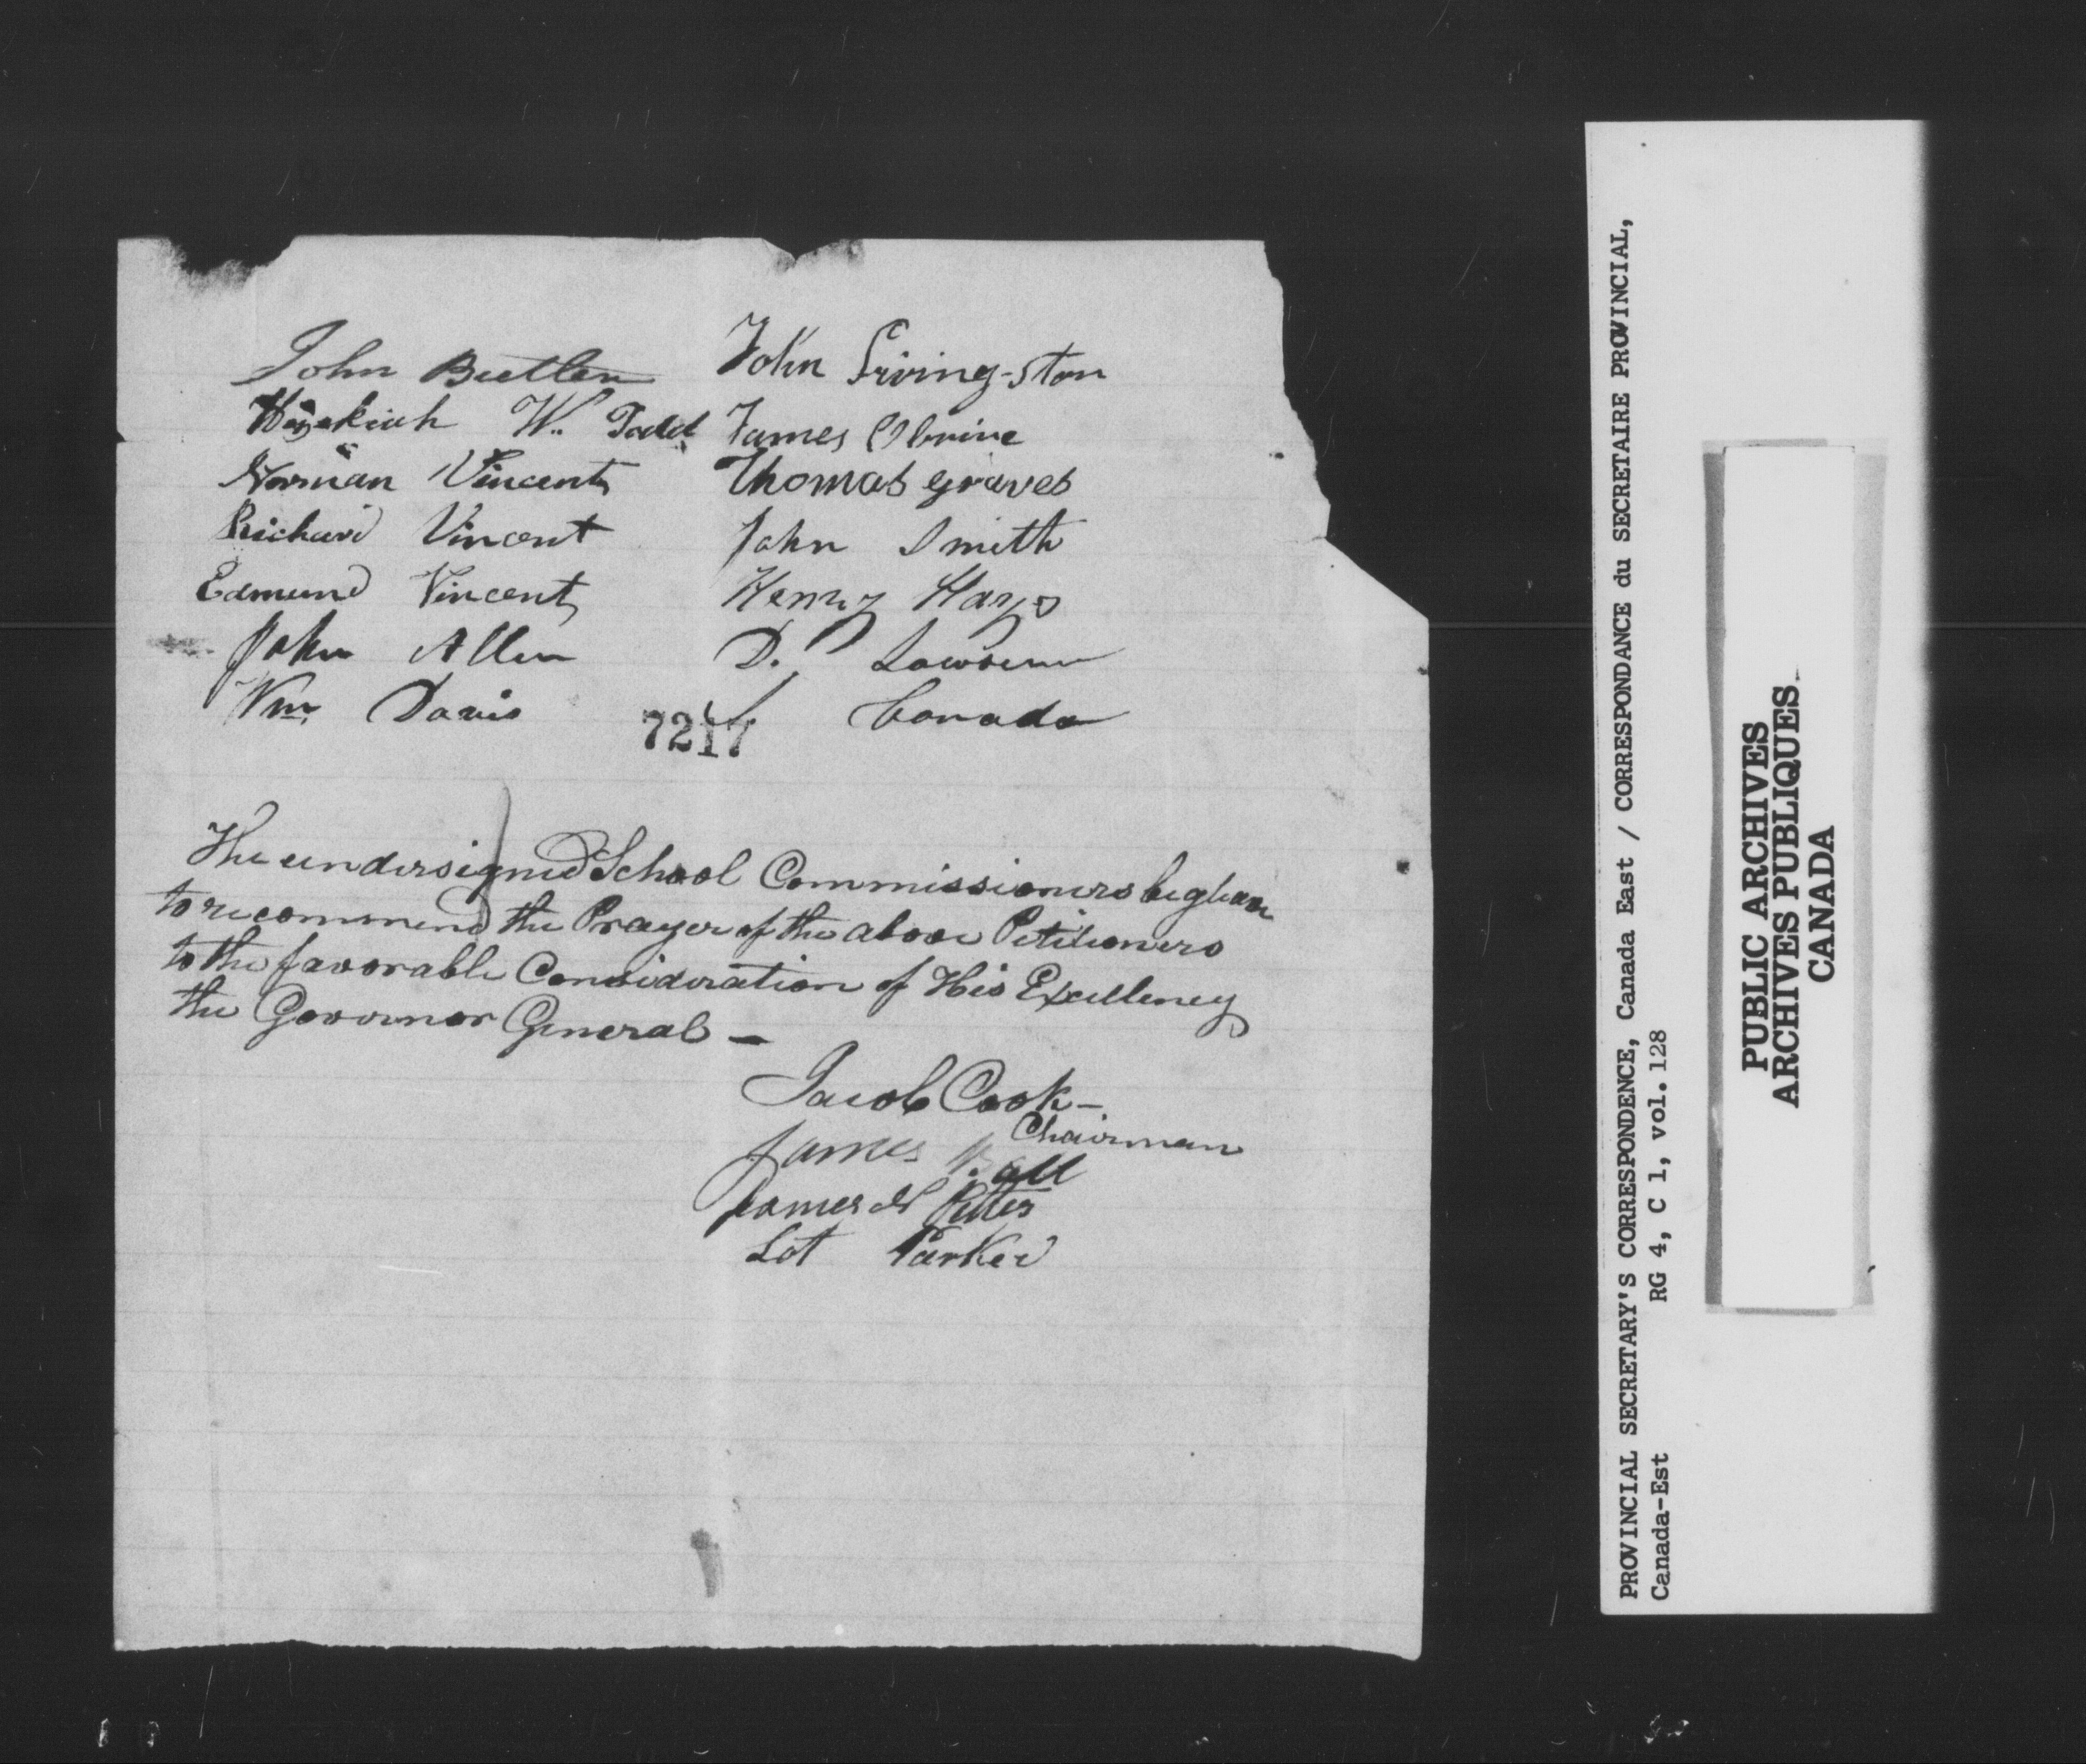 John Butler
Hezekiah W. Todd
Norman Vincent
Richard Vincent
Edmund Vincent
John Allen
Wm Davis
John Livingston
James Obrine
Thomas Graves
John Smith
Henry Hays
D. Lawrence
J Canada
7217
The undersigned School Commissioners beg leave
to recommend the Prayer of the above Petitioners
to the favorable Consideration of His Excellency
the Governor General —
Jacob Cook —
Chairman
James Ball
James Peters
Lot Parker
PROVINCIAL SECRETARY'S CORRESPONDENCE, Canada East / CORRESPONDANCE du SECRETAIRE PROVINCIAL,
Canada-Est RG 4, C 1, vol. 128
PUBLIC ARCHIVES
ARCHIVES PUBLIQUES
CANADA